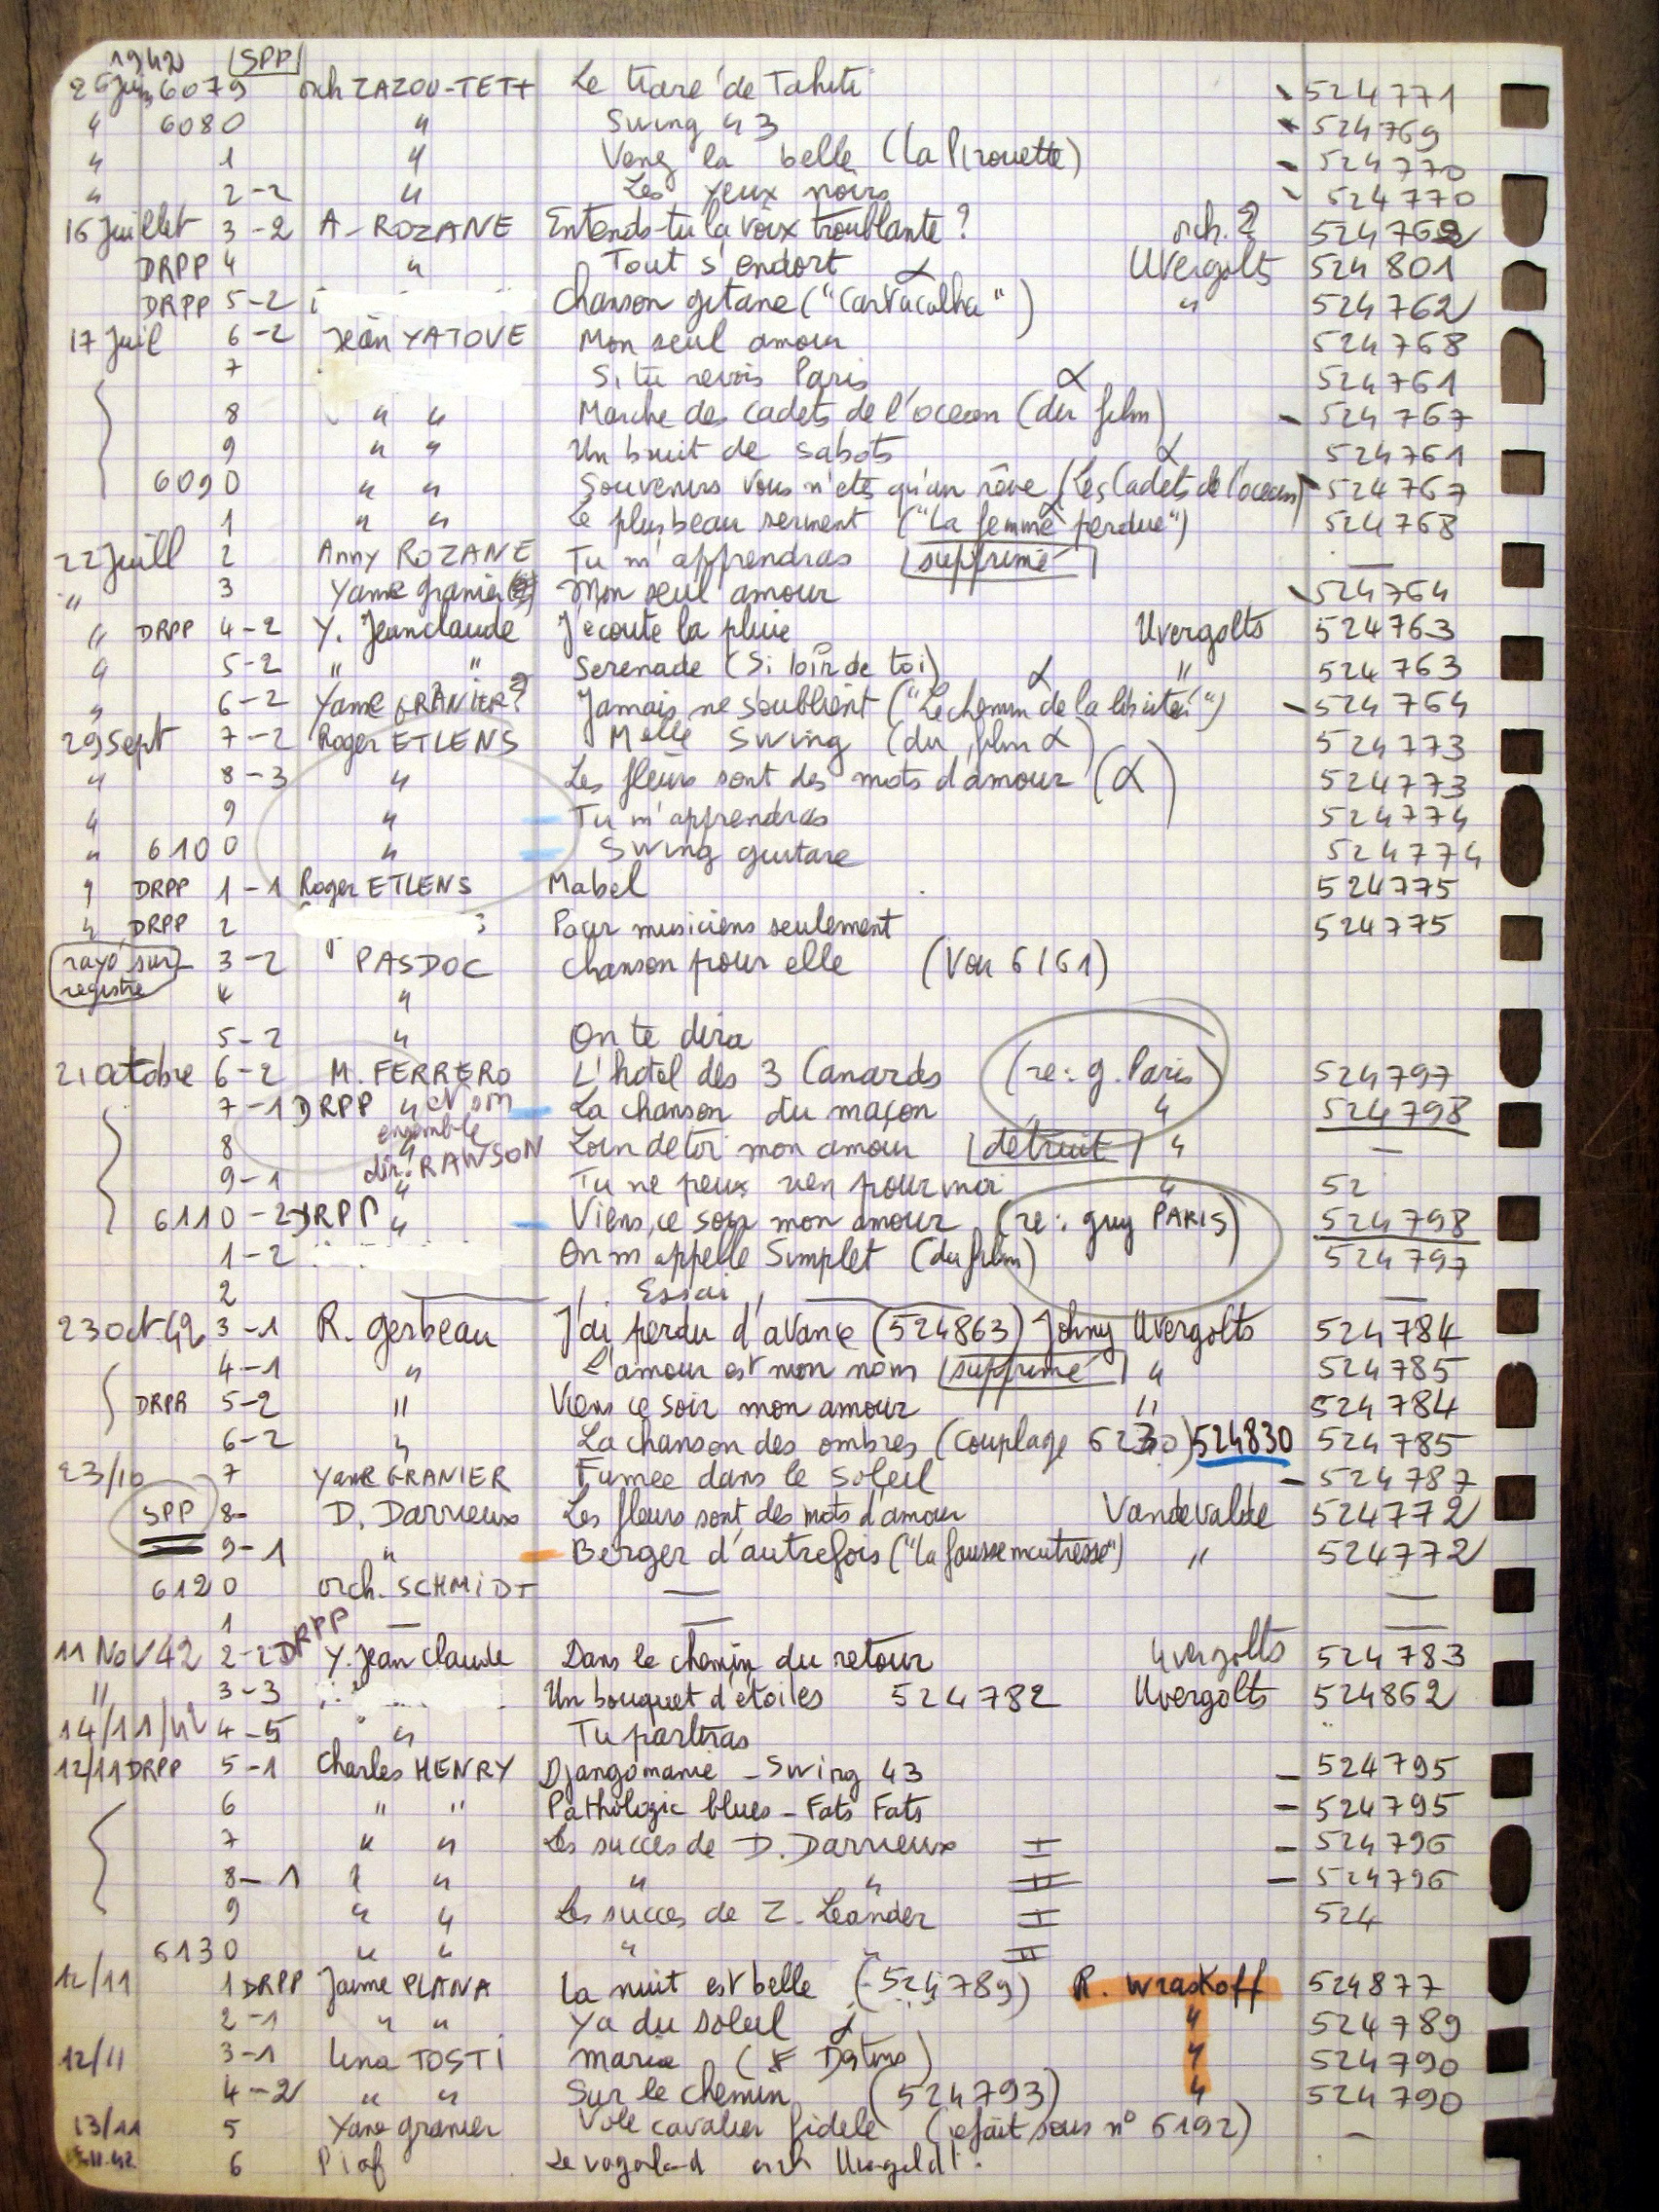 1942 SPP
26 Juin 6079 orch ZAZOU-TETT Le tiare de Tahiti 524771
" 6080 " Swing 43 524769
" 1 " Venez la belle (La Pirouette) 524770
" 2-2 " Les yeux noirs 524770
16 Juillet 3-2 A-ROZANE Entends-tu la voix troublante? orch.? 524762
DRPP 4 " Tout s'endort α Uvergolts 524801
DRPP 5-2 Chanson gitane ("Cartacalha") " 524762
17 Juil 6-2 Jean YATOVE Mon seul amour 524768
7 Si tu revois Paris α 524761
8 " " Marche des cadets de l'ocean (du film) - 524767
9 " " Un bruit de sabots α 524761
6090 " " Souvenirs vous n'etes qu'un rêve (Les Cadets de l'ocean) 524767
1 " " Le plus beau serment ("La femme perdue") 524768
22 Juill 2 Anny ROZANE Tu m'apprendras supprimé —
" 3 Yane Granier Mon seul amour 524764
" DRPP 4-2 Y. Jeanclaude J'ecoute la pluie Uvergolts 524763
" 5-2 " " Serenade (Si loin de toi) α " 524763
" 6-2 Yane GRANIER? Jamais ne s'oublient ("Le chemin de la liberté") - 524764
29 Sept 7-2 Roger ETLENS Melle Swing (du film α) 524773
" 8-3 " Les fleurs sont des mots d'amour (α) 524773
" 9 " Tu m'apprendras 524774
" 6100 " Swing guitare 524774
" DRPP 1-1 Roger ETLENS Mabel 524775
" DRPP 2 Pour musiciens seulement 524775
rayé sur registre 3-2 PASDOC Chanson pour elle (Voir 6161)
4 "
5-2 " On te dira
21 Octobre 6-2 M. FERRERO L'hotel des 3 Canards (re: g. Paris) 524797
7-1 DRPP " et son La chanson du maçon " 524798
8 ensemble " Loin de toi mon amour detruit " —
9-1 dir. RAWSON " Tu ne peux rien pour moi " 52
6110-2 DRPP " Viens ce soir mon amour (re: guy PARIS) 524798
1-2 On m'appelle Simplet (du film) 524797
2 Essai —
23 Oct 42 3-1 R. Gerbeau J'ai perdu d'avance (524863) Johny Uvergolts 524784
4-1 " L'amour est mon nom supprimé " 524785
DRPP 5-2 " Viens ce soir mon amour " 524784
6-2 " La chanson des ombres (Couplage 6230) 524830 524785
23/10 7 Yane GRANIER Fumee dans le soleil - 524787
SPP 8- D. Darrieux Les fleurs sont des mots d'amour Vandevalde 524772
9-1 " Berger d'autrefois ("La fausse maitresse") " 524772
6120 orch. SCHMIDT — —
1 — — —
11 Nov 42 2-2 DRPP Y. Jean Claude Dans le chemin du retour Uvergolts 524783
" 3-3 Un bouquet d'étoiles 524782 Uvergolts 524862
14/11/42 4-5 " " Tu partiras "
12/11 DRPP 5-1 Charles HENRY Djangomanie - Swing 43 - 524795
6 " " Pathologic blues - Fats Fats - 524795
7 " " Les succes de D. Darrieux I - 524796
8-1 " " " " II - 524796
9 " " Les succes de Z. Leander I 524
6130 " " " " II
12/11 1 DRPP Jaime PLANA La nuit est belle (524789) R. Wraskoff 524877
2-1 " " Ya du soleil α " 524789
12/11 3-1 Lina TOSTI Maria " 524790
4-2 " " Sur le chemin (524793) " 524790
13/11 5 Yane granier Vole cavalier fidele (refait sous n° 6192) —
6 Piaf Le vagabond orch